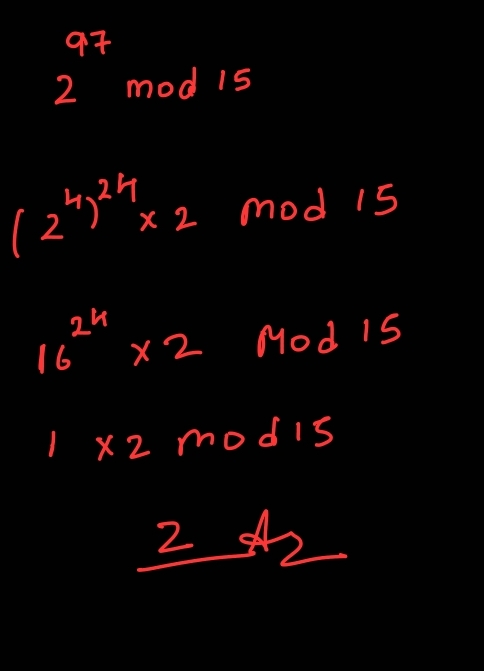 2^97 mod 15
(2^4)^24 x 2 mod 15
16^24 x 2 Mod 15
1 x 2 mod 15
2